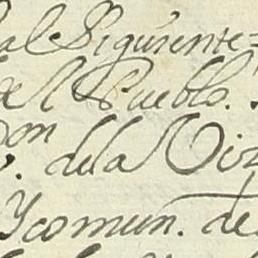 al Siguiente=
del Pueblo.
on
. dela Viz
Ycomun. de